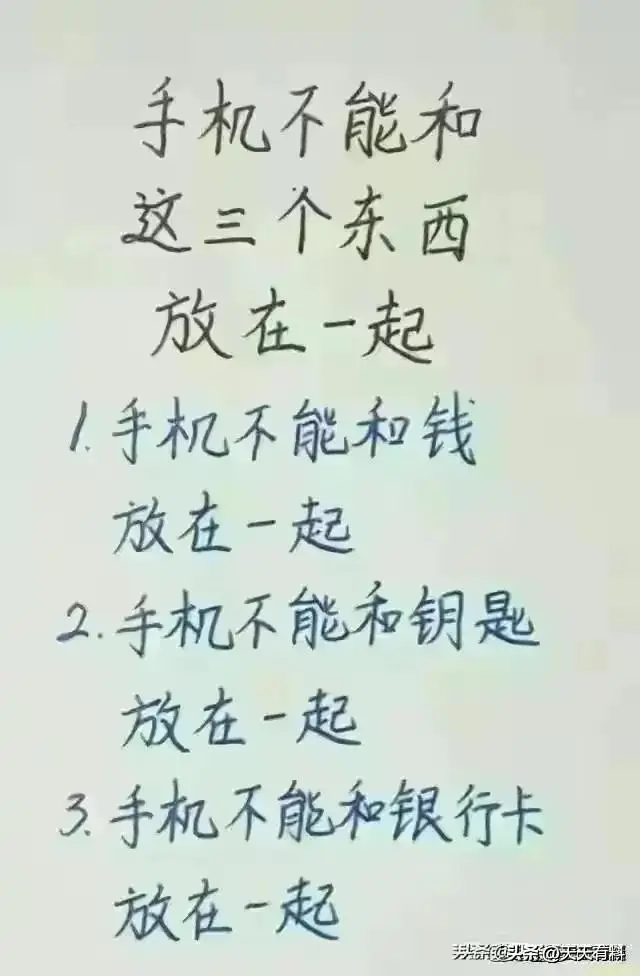 手机不能和
这三个东西
放在一起
1.手机不能和钱
放在一起
2.手机不能和钥匙
放在一起
3.手机不能和银行卡
放在一起
头条@天天有料